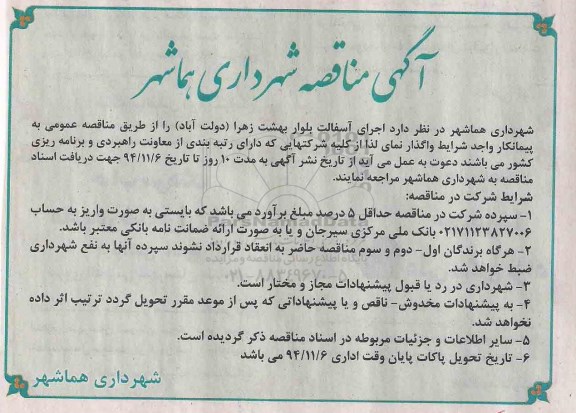 آگهی مناقصه شهرداری هماشهر
شهرداری هماشهر در نظر دارد اجرای آسفالت بلوار بهشت زهرا (دولت آباد) را از طریق مناقصه عمومی به
پیمانکار واجد شرایط واگذار نمای لذا از کلیه شرکتهایی که دارای رتبه بندی از معاونت راهبردی و برنامه ریزی
کشور می باشند دعوت به عمل می آید از تاریخ نشر آگهی به مدت ۱۰ روز تا تاریخ ۹۴/۱۱/۶ جهت دریافت اسناد
مناقصه به شهرداری هماشهر مراجعه نمایند.
شرایط شرکت در مناقصه:
۱- سپرده شرکت در مناقصه حداقل ۵ درصد مبلغ برآورد می باشد که بایستی به صورت واریز به حساب
۰۲۱۷۱۱۲۳۸۲۷۰۰۶ بانک ملی مرکزی سیرجان و یا به صورت ارائه ضمانت نامه بانکی معتبر باشد.
۲- هرگاه برندگان اول- دوم و سوم مناقصه حاضر به انعقاد قرارداد نشوند سپرده آنها به نفع شهرداری
ضبط خواهد شد.
۳- شهرداری در رد یا قبول پیشنهادات مجاز و مختار است.
۴- به پیشنهادات مخدوش- ناقص و یا پیشنهاداتی که پس از موعد مقرر تحویل گردد ترتیب اثر داده
نخواهد شد.
۵- سایر اطلاعات و جزئیات مربوطه در اسناد مناقصه ذکر گردیده است.
۶- تاریخ تحویل پاکات پایان وقت اداری ۹۴/۱۱/۶ می باشد
شهرداری هماشهر
پایگاه اطلاع رسانی مناقصه و مزایده
۰۲۱-۸۸۳۴۹۶۷۰-۵